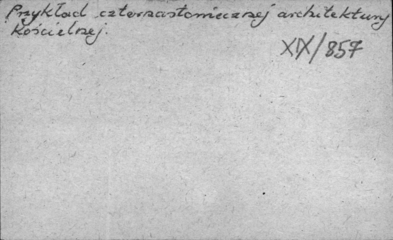 Przykład czternastowiecznej architektury
kościelnej.
XIX/857